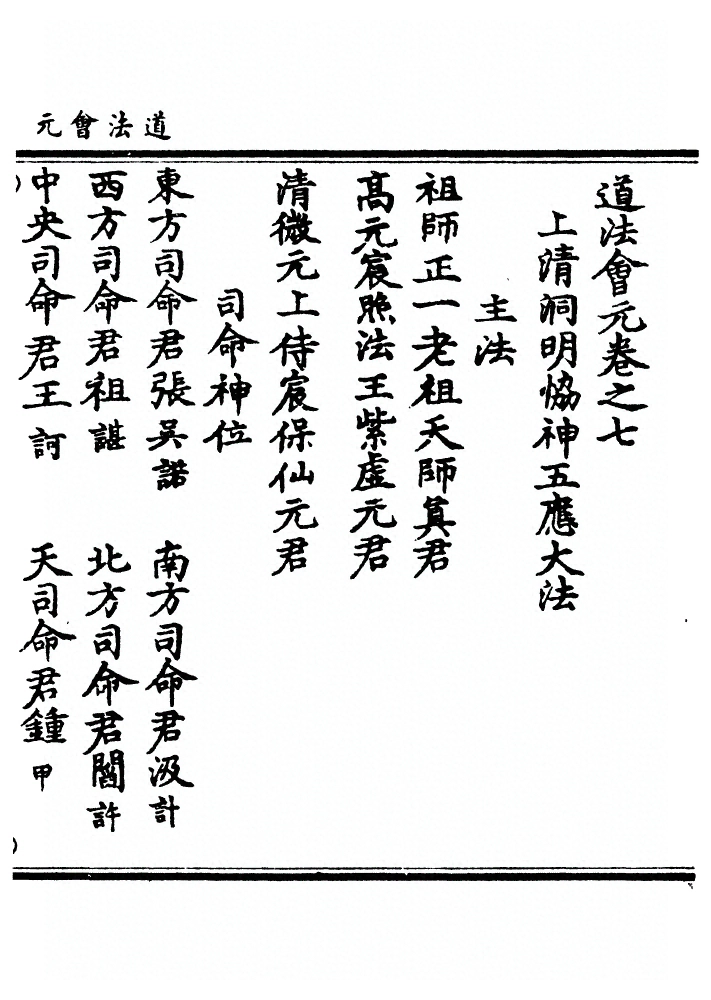 道法會元
道法會元卷之七
上清洞明恊神五應大法
主法
祖師正一老祖天師真君
高元宸照法王紫虛元君
清微元上侍宸保仙元君
司命神位
東方司命君張吳諾 南方司命君汲計
西方司命君祖諶 北方司命君閻許
中央司命君王訶 天司命君鍾甲